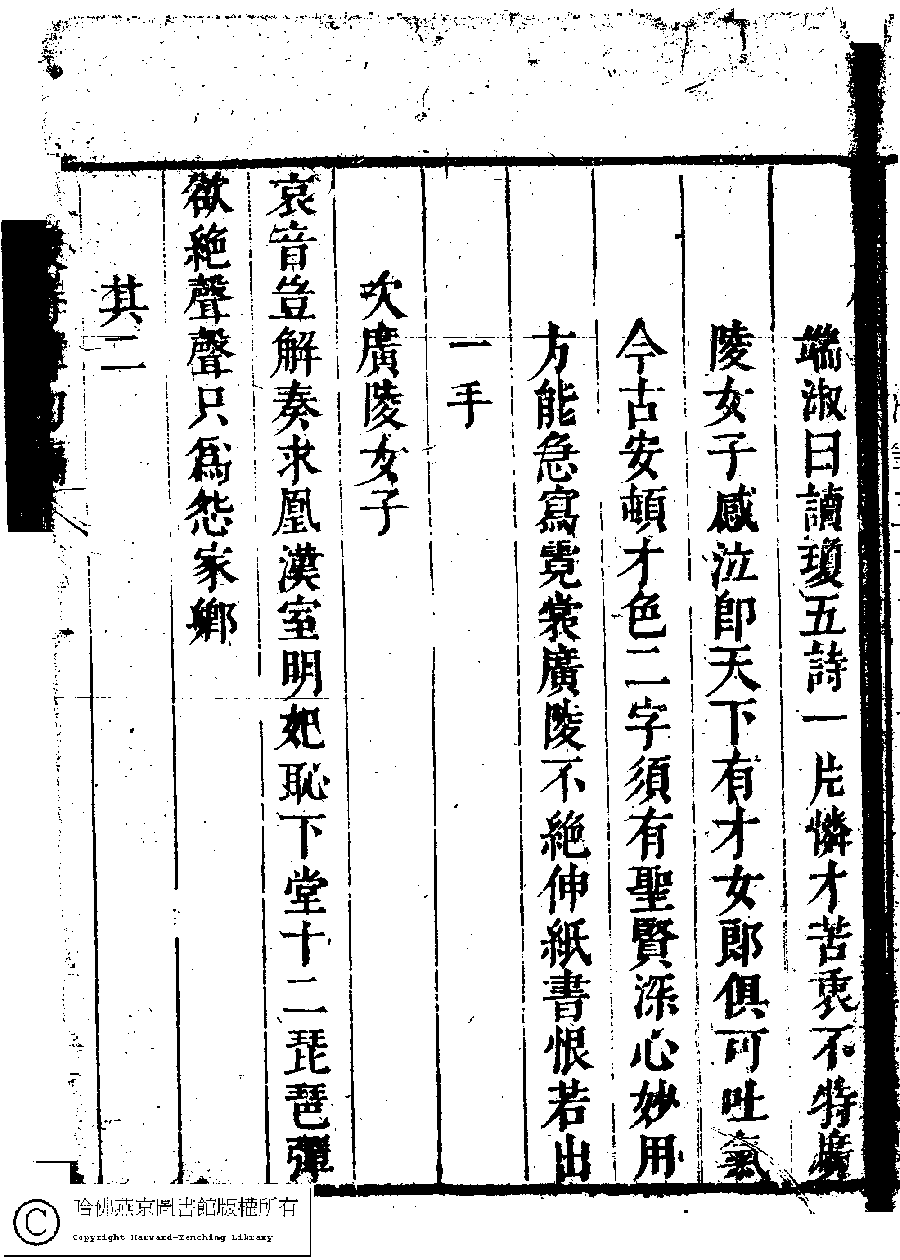 端淑曰讀瓊五詩一片憐才苦衷不特廣
陵女子感泣即天下有才女郎俱可吐氣
今古安頓才色二字須有聖賢深心妙用
方能急寫霓裳廣陵不絕伸紙書恨若出
一手
吹廣陵女子
哀音豈解奏求凰漢室明妃恥下堂十二琵琶彈
欲絕聲聲只為怨家鄉
其二
哈佛燕京圖書館版權所有
Copyright Harvard-Yenching Library